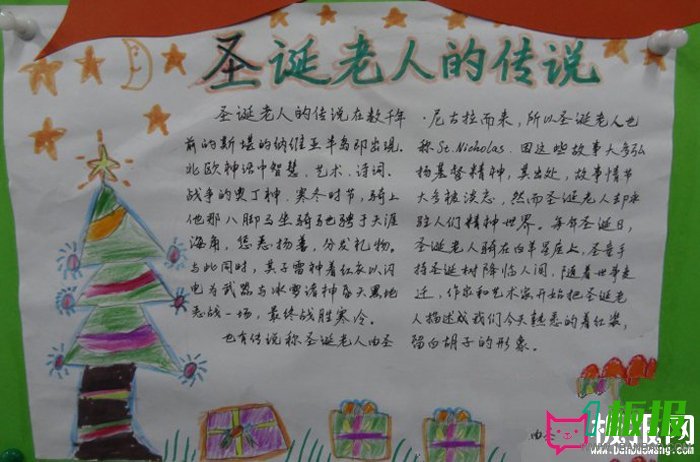 圣诞老人的传说
圣诞老人的传说在数千年
前的斯堪的纳维亚半岛即出现。
北欧神话中智慧、艺术、诗词、
战争的奥丁神，寒冬时节，骑上
他那八脚马坐骑驰骋于天涯
海角，惩恶扬善，分发礼物。
与此同时，其子雷神着红衣以闪
电为武器与冰雪诸神昏天黑地
恶战一场，最终战胜寒冷。
也有传说称圣诞老人由圣
·尼古拉而来，所以圣诞老人也
称St.Nicholas.因这些故事大多弘
扬基督精神，其出处，故事情节
大多被淡忘，然而圣诞老人却永
驻人们精神世界。每年圣诞日，
圣诞老人骑在白羊星座上，圣童手
持圣诞树降临人间，随着世事变
迁，作家和艺术家开始把圣诞老
人描述成我们今天熟悉的着红装，
留白胡子的形象。
板报网